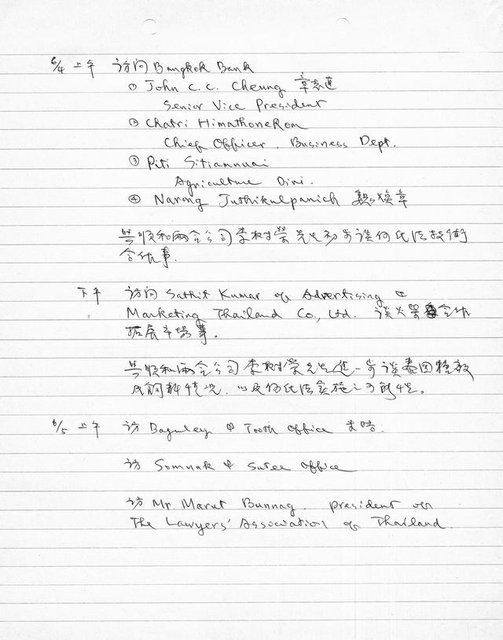 6/4 上午 訪問 Bangkok Bank
① John C. C. Cheung 章
Senior Vice President
② Chatri Himathongkom
Chief Officer, Business Dept.
③ Piti Sitiamnuai
Agriculture Divi.
④ Narong Juthikulpanich 魏 章
與順和兩合公司李樹榮先生初步談何氏法技術
合作事.
下午 訪問 Sathit Kumar of Advertising &
Marketing Thailand Co., Ltd. 談 合作
拓展市場事.
與順和兩合公司李樹榮先生進一步談泰国
飼料情況, 以及何氏法實施之可能性。
6/5 上午 訪 Baguley & Tooth Office
訪 Somnuk & Sutee Office
訪 Mr Marut Bunnag, president of
The Lawyers' Association of Thailand.